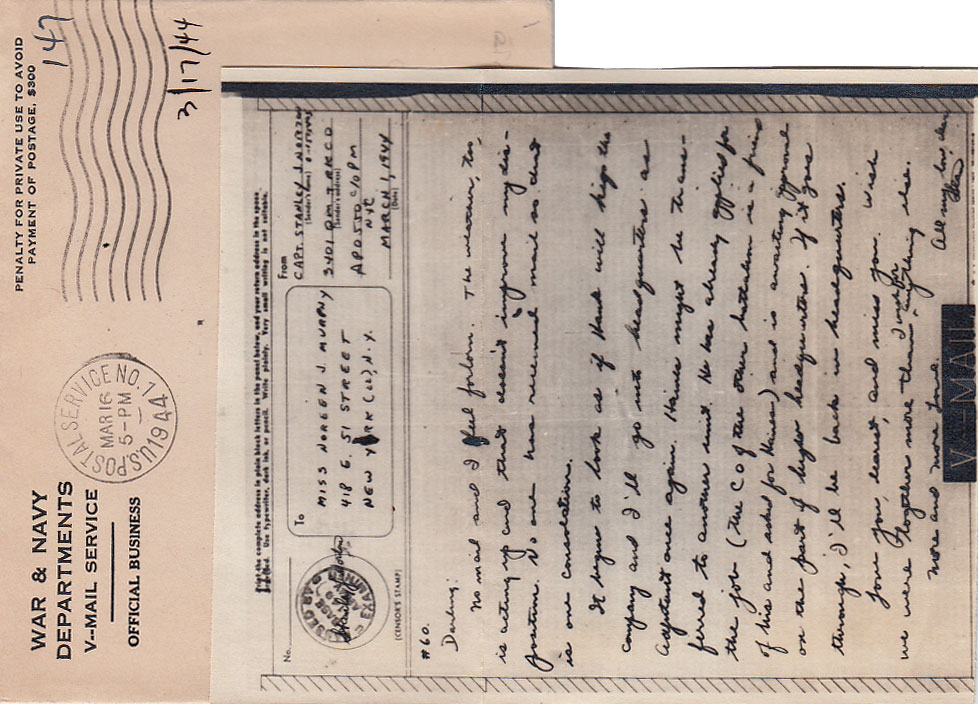 WAR & NAVY
DEPARTMENTS
V--MAIL SERVICE
OFFICIAL BUSINESS
U.S. POSTAL SERVICE NO. 1
MAR 16
5-PM
1944
PENALTY FOR PRIVATE USE TO AVOID
PAYMENT OF POSTAGE, $300
147
3/17/44
Print the complete address in plain block letters in the panel below, and your return address in the space
provided. Use typewriter, dark ink, or pencil. Write plainly. Very small writing is not suitable.
No.
(CENSOR'S STAMP)
To
MISS NOREEN J. MURPHY
418 E. 51 STREET
NEW YORK (22), N.Y.
From
CAPT. STANLEY J.
(Sender's name)
3401 QM TRK CO
(Sender's address)
APO 550 c/o PM
NYC
MARCH 1, 1944
(Date)
#60.
Darling:
No mail and I feel forlorn. The weather, too,
is acting up and that doesn't improve my dis-
position. No one has received mail so that
is one consolation.
It begins to look as if Hank will keep the
company and I'll go into headquarters as
Adjutant once again. Haines might be trans-
ferred to another unit. He has already applied for
the job (the CO of the other battalion is a friend
of his and asked for Haines) and is awaiting approval
on the part of higher headquarters. If it goes
through, I'll be back in headquarters.
Love you, dearest, and miss you. Wish
we were together more than I wish for anything else.
More and more love.
All my love, dear
Stan
V--MAIL